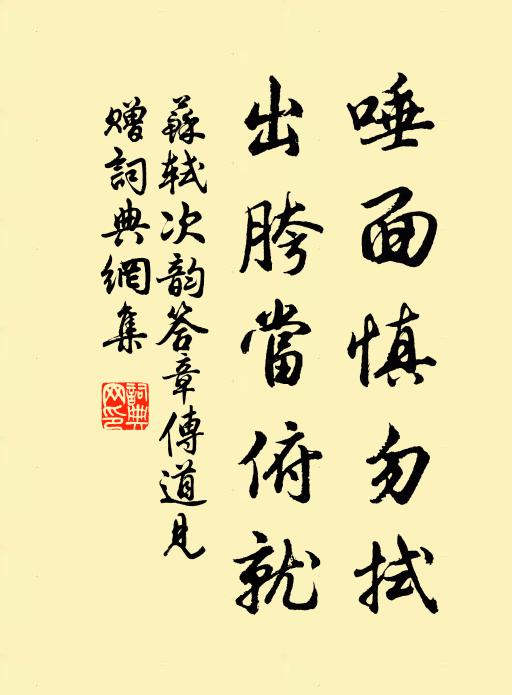 唾面慎勿拭
出胯當俯就
蘇軾次韵答章傳道見
贈詞典網集
詞典
网印